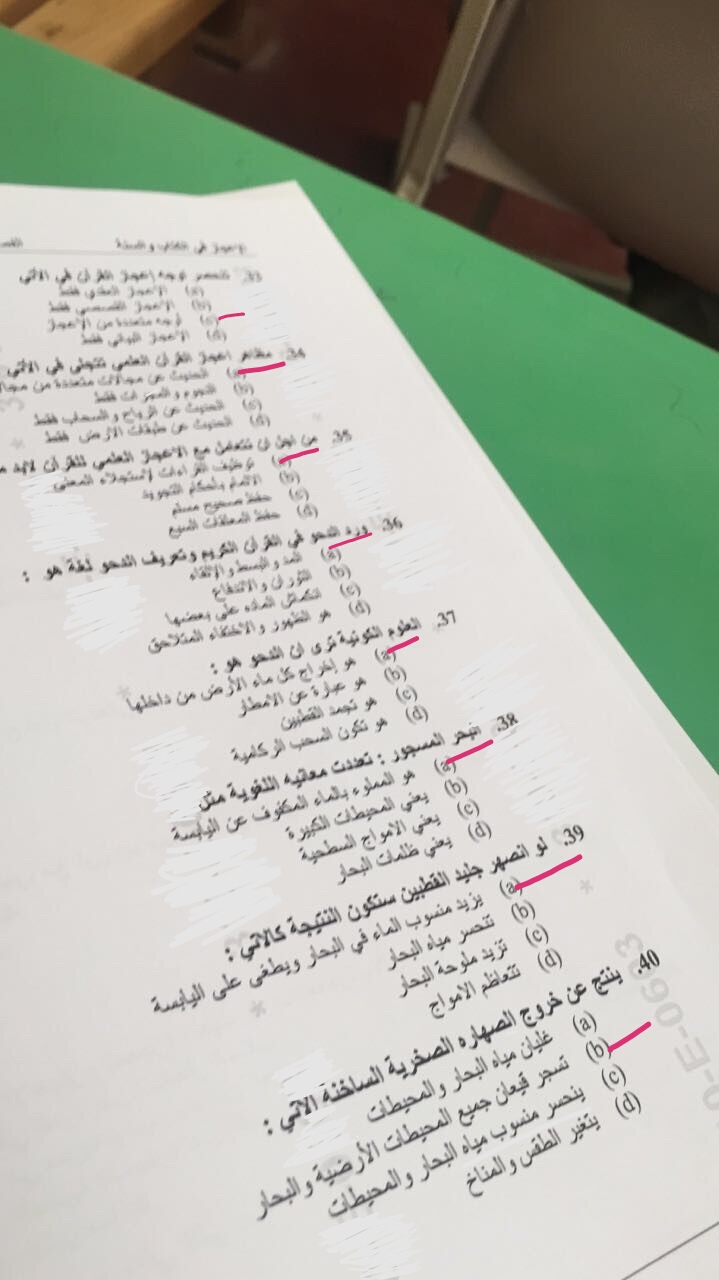 الاعجاز في الكتاب والسنة
33. تنحصر اوجه إعجاز القرآن في الآتي
(a) الاعجاز العقدي فقط
(b) الاعجاز القصصي فقط
(c) اوجه متعددة من الاعجاز
(d) الاعجاز البياني فقط
34. مظاهر اعجاز القرآن العلمي تتجلى في الآتي
(a) الحديث عن مجالات متعددة من
(b) النجوم و المجرات فقط
(c) الحديث عن الرياح و السحاب فقط
(d) الحديث عن طبقات الأرض فقط
35. من اجل ان نتعامل مع الاعجاز العلمي للقرآن لابد
(a) توظيف القراءات لاستجلاء المعنى
(b) الالمام بأحكام التجويد
(c) حفظ صحيح مسلم
(d) حفظ المعلقات السبع
36. ورد الدحو في القرآن الكريم وتعريف الدحو لغة هو :
(a) المد و البسط والإلقاء
(b) الثوران و الاندفاع
(c) انكماش الماده على بعضها
(d) هو الظهور و الاختفاء المتلاحق
37. العلوم الكونية ترى ان الدحو هو :
(a) هو إخراج كل ماء الأرض من داخلها
(b) هو عبارة عن الامطار
(c) هو تجمد القطبين
(d) هو تكون السحب الركامية
38. البحر المسجور : تعددت معانيه اللغوية مثل
(a) هو المملوء بالماء المكفوف عن اليابسة
(b) يعني المحيطات الكبيرة
(c) يعني الامواج السطحية
(d) يعني ظلمات البحار
39. لو انصهر جليد القطبين ستكون النتيجة كالآتي :
(a) يزيد منسوب الماء في البحار ويطغى على اليابسة
(b) تنحسر مياه البحار
(c) تزيد ملوحة البحار
(d) تتعاظم الامواج
40. ينتج عن خروج الصهاره الصخرية الساخنة الآتي :
(a) غليان مياه البحار و المحيطات
(b) تسجر قيعان جميع المحيطات الأرضية و البحار
(c) ينحسر منسوب مياه البحار و المحيطات
(d) يتغير الطقس و المناخ